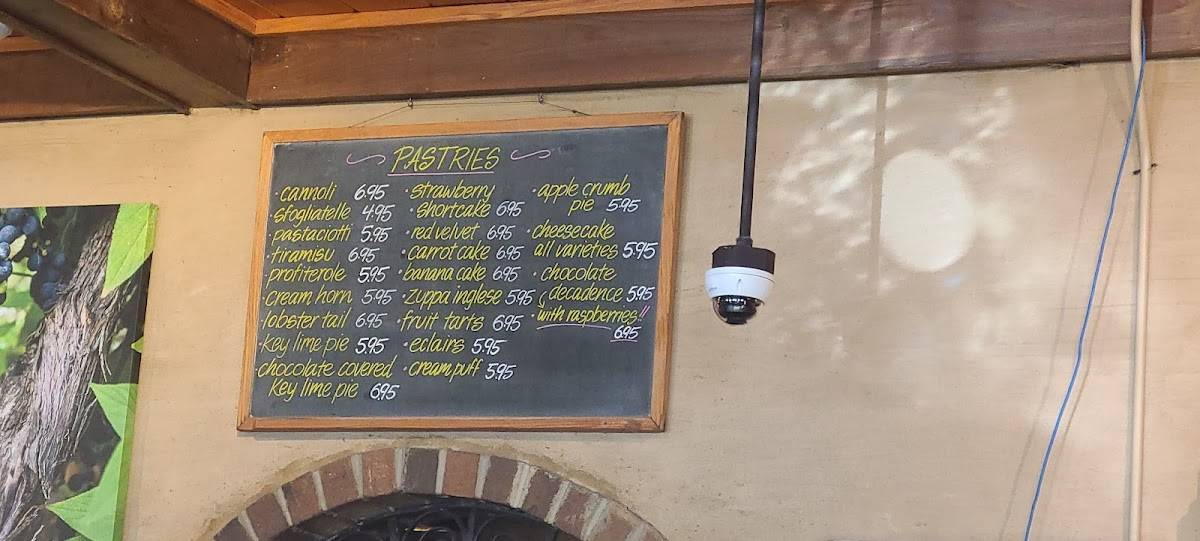 PASTRIES
· cannoli 6.95
· sfogliatelle 4.95
· pastaciotti 5.95
· tiramisu 6.95
· profiterole 5.95
· cream horn 5.95
· lobster tail 6.95
· key lime pie 5.95
· chocolate covered
key lime pie 6.95
· strawberry
· shortcake 6.95
· red velvet 6.95
· carrot cake 6.95
· banana cake 6.95
· zuppa inglese 5.95
· fruit tarts 6.95
· eclairs 5.95
· cream puff 5.95
· apple crumb
pie 5.95
· cheesecake
all varieties 5.95
· chocolate
decadence 5.95
· with raspberries!!
6.95